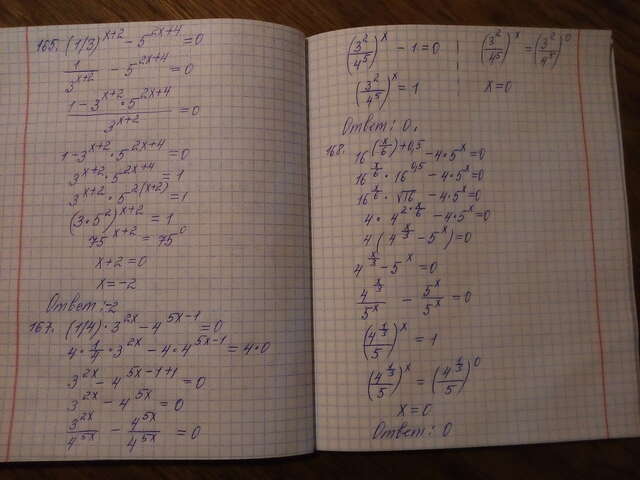 165. (1/3)^(x+2) - 5^(2x+4) = 0
1/3^(x+2) - 5^(2x+4) = 0
(1 - 3^(x+2) · 5^(2x+4))/3^(x+2) = 0
1 - 3^(x+2) · 5^(2x+4) = 0
3^(x+2) · 5^(2x+4) = 1
3^(x+2) · 5^(2(x+2)) = 1
(3 · 5^2)^(x+2) = 1
75^(x+2) = 75^0
x + 2 = 0
x = -2
Ответ: -2
167. (1/4) · 3^(2x) - 4^(5x-1) = 0
4 · 1/4 · 3^(2x) - 4 · 4^(5x-1) = 4 · 0
3^(2x) - 4^(5x-1+1) = 0
3^(2x) - 4^(5x) = 0
3^(2x)/4^(5x) - 4^(5x)/4^(5x) = 0
(3^2/4^5)^x - 1 = 0 | (3^2/4^5)^x = (3^2/4^5)^0
(3^2/4^5)^x = 1 x = 0
Ответ: 0.
168. 16^((x/6)+0,5) - 4·5^x = 0
16^(x/6) · 16^(0,5) - 4·5^x = 0
16^(x/6) · √16 - 4·5^x = 0
4 · 4^(2·x/6) - 4·5^x = 0
4(4^(x/3) - 5^x) = 0
4^(x/3) - 5^x = 0
4^(x/3)/5^x - 5^x/5^x = 0
(4^(1/3)/5)^x = 1
(4^(1/3)/5)^x = (4^(1/3)/5)^0
x = 0
Ответ: 0